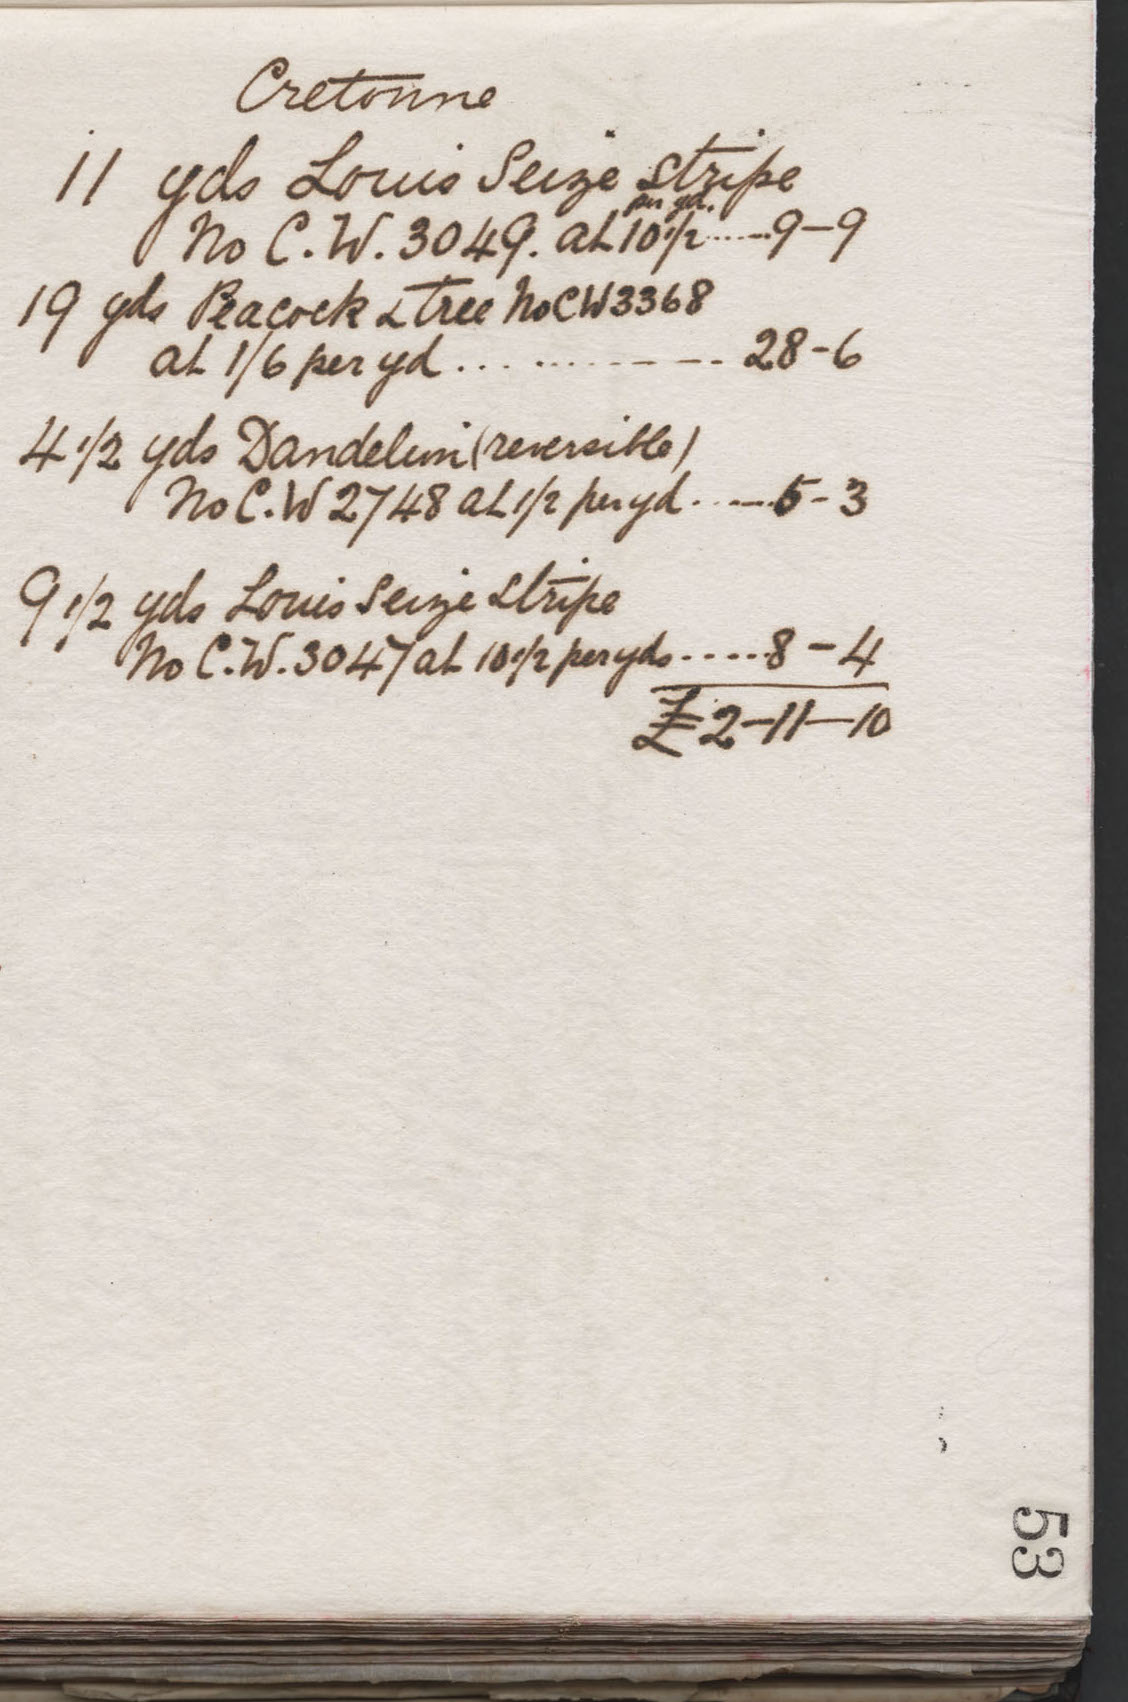 Cretonne
11 yds Louis Seize Stripe
per yd.
No C.W. 3049. at 10 1/2 ......9-9
19 yds Peacock & tree No CW3368
at 1/6 per yd .............. 28-6
4 1/2 yds Dandelion (reversible)
No C.W 2748 at 1/2 per yd ......5-3
9 1/2 yds Louis Seize Stripe
No C.W. 3047 at 10 1/2 per yds ......8-4
£2-11-10
53